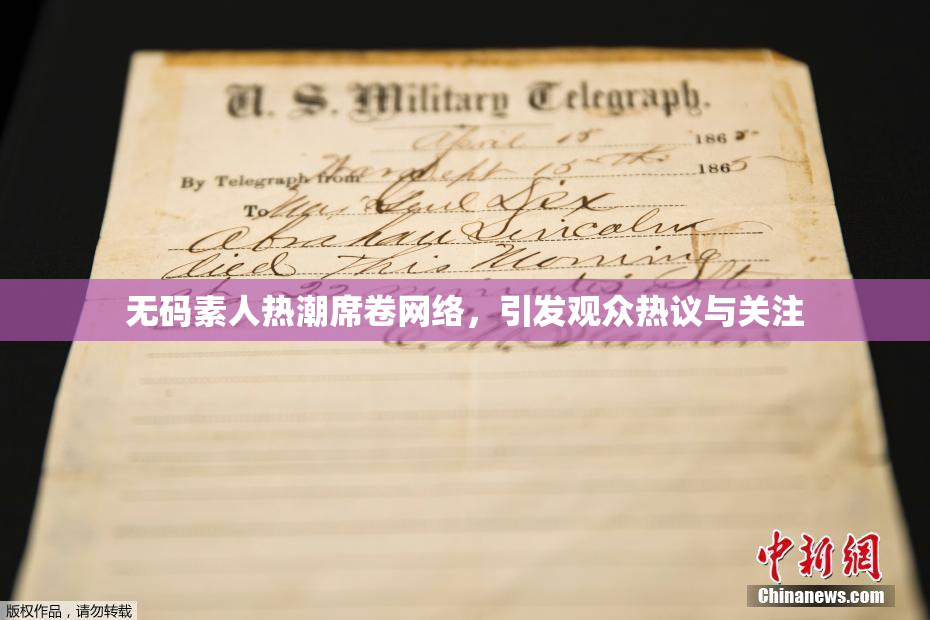 U. S. Military Telegraph.
April 15 1865
By Telegraph from War Dept 15th 1865
To Maj Genl Dix
Abraham Lincoln
died This Morning
at 22 minutes after
无码素人热潮席卷网络，引发观众热议与关注
E. M. Stanton
中新网
Chinanews.com
版权作品，请勿转载